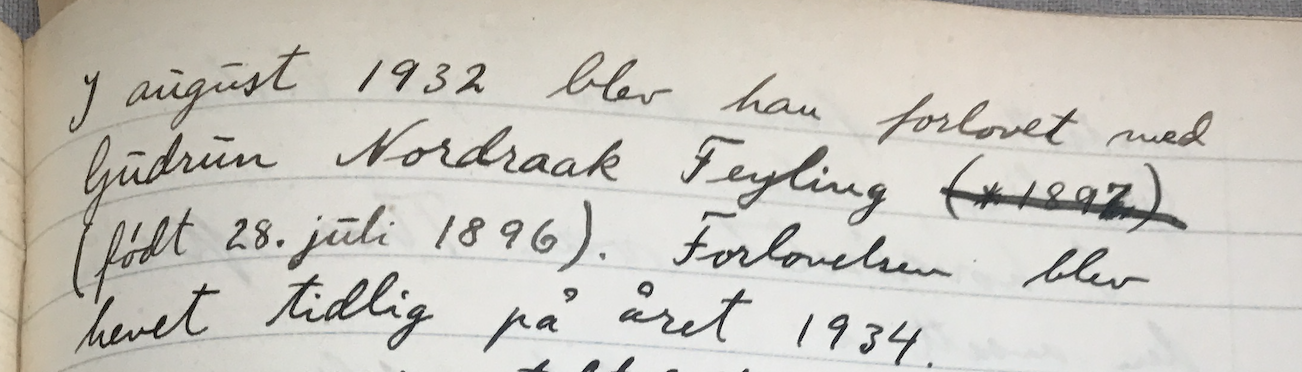 I august 1932 blev han forlovet med
Gudrun Nordraak Feyling (* 1897)
(født 28. juli 1896). Forlovelsen blev
hevet tidlig på året 1934.